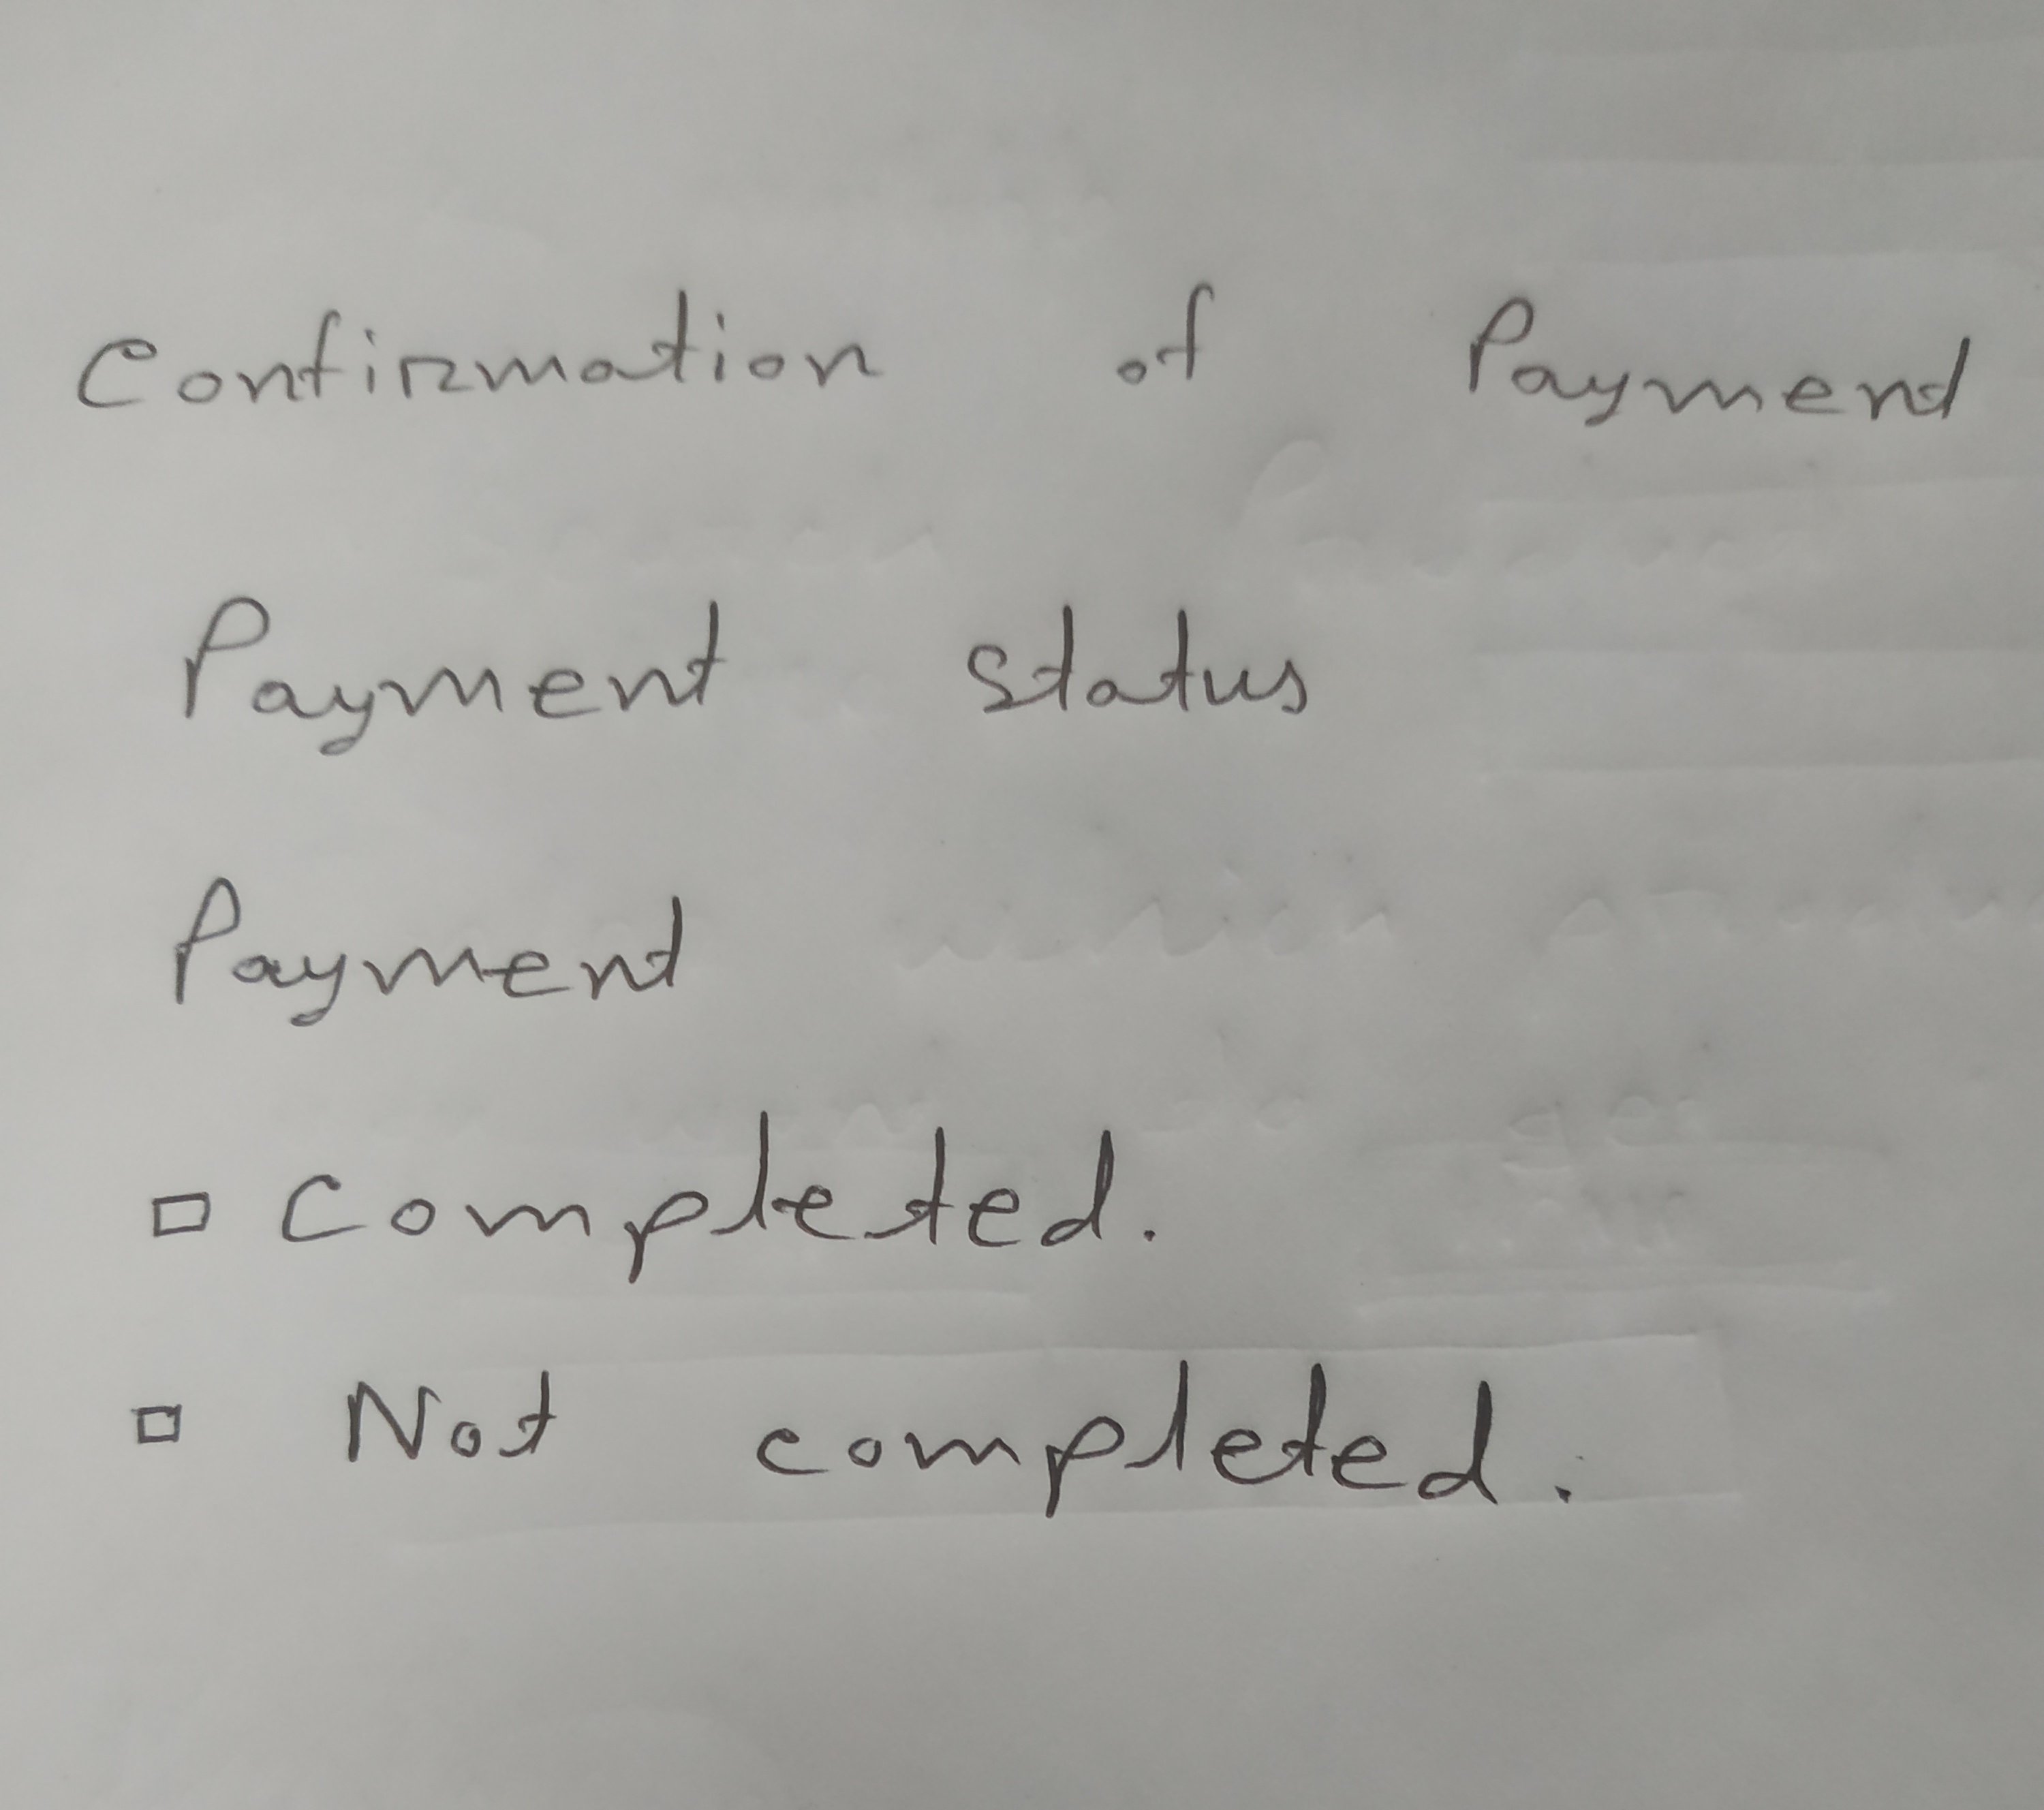 Confirmation of Payment
Payment status
Payment
□ Completed.
□ Not completed.